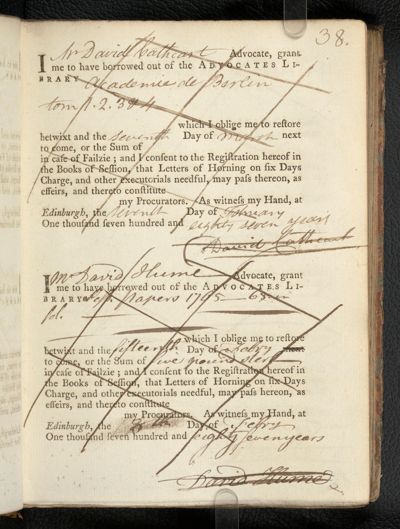 38.
I Mr David Cathcart Advocate, grant
me to have borrowed out of the ADVOCATES LI-
BRARY Academie de Berlin
tom 1. 2. 3 & 4
which I oblige me to restore
betwixt and the seventh Day of March next
to come, or the Sum of
in case of Failzie; and I consent to the Registration hereof in
the Books of Session, that Letters of Horning on six Days
Charge, and other executorials needful, may pass thereon, as
effeirs, and thereto constitute
my Procurators. As witness my Hand, at
Edinburgh, the seventh Day of February
One thousand seven hundred and eighty seven years
David Cathcart
I Mr David Hume Advocate, grant
me to have borrowed out of the ADVOCATES LI-
BRARY Papers 1765
fol.
which I oblige me to restore
betwixt and the fifteenth Day of next
to come, or the Sum of five pound ster
in case of Failzie; and I consent to the Registration hereof in
the Books of Session, that Letters of Horning on six Days
Charge, and other executorials needful, may pass thereon, as
effeirs, and thereto constitute
my Procurators. As witness my Hand, at
Edinburgh, the 8th Day of
One thousand seven hundred and eighty seven years
David Hume